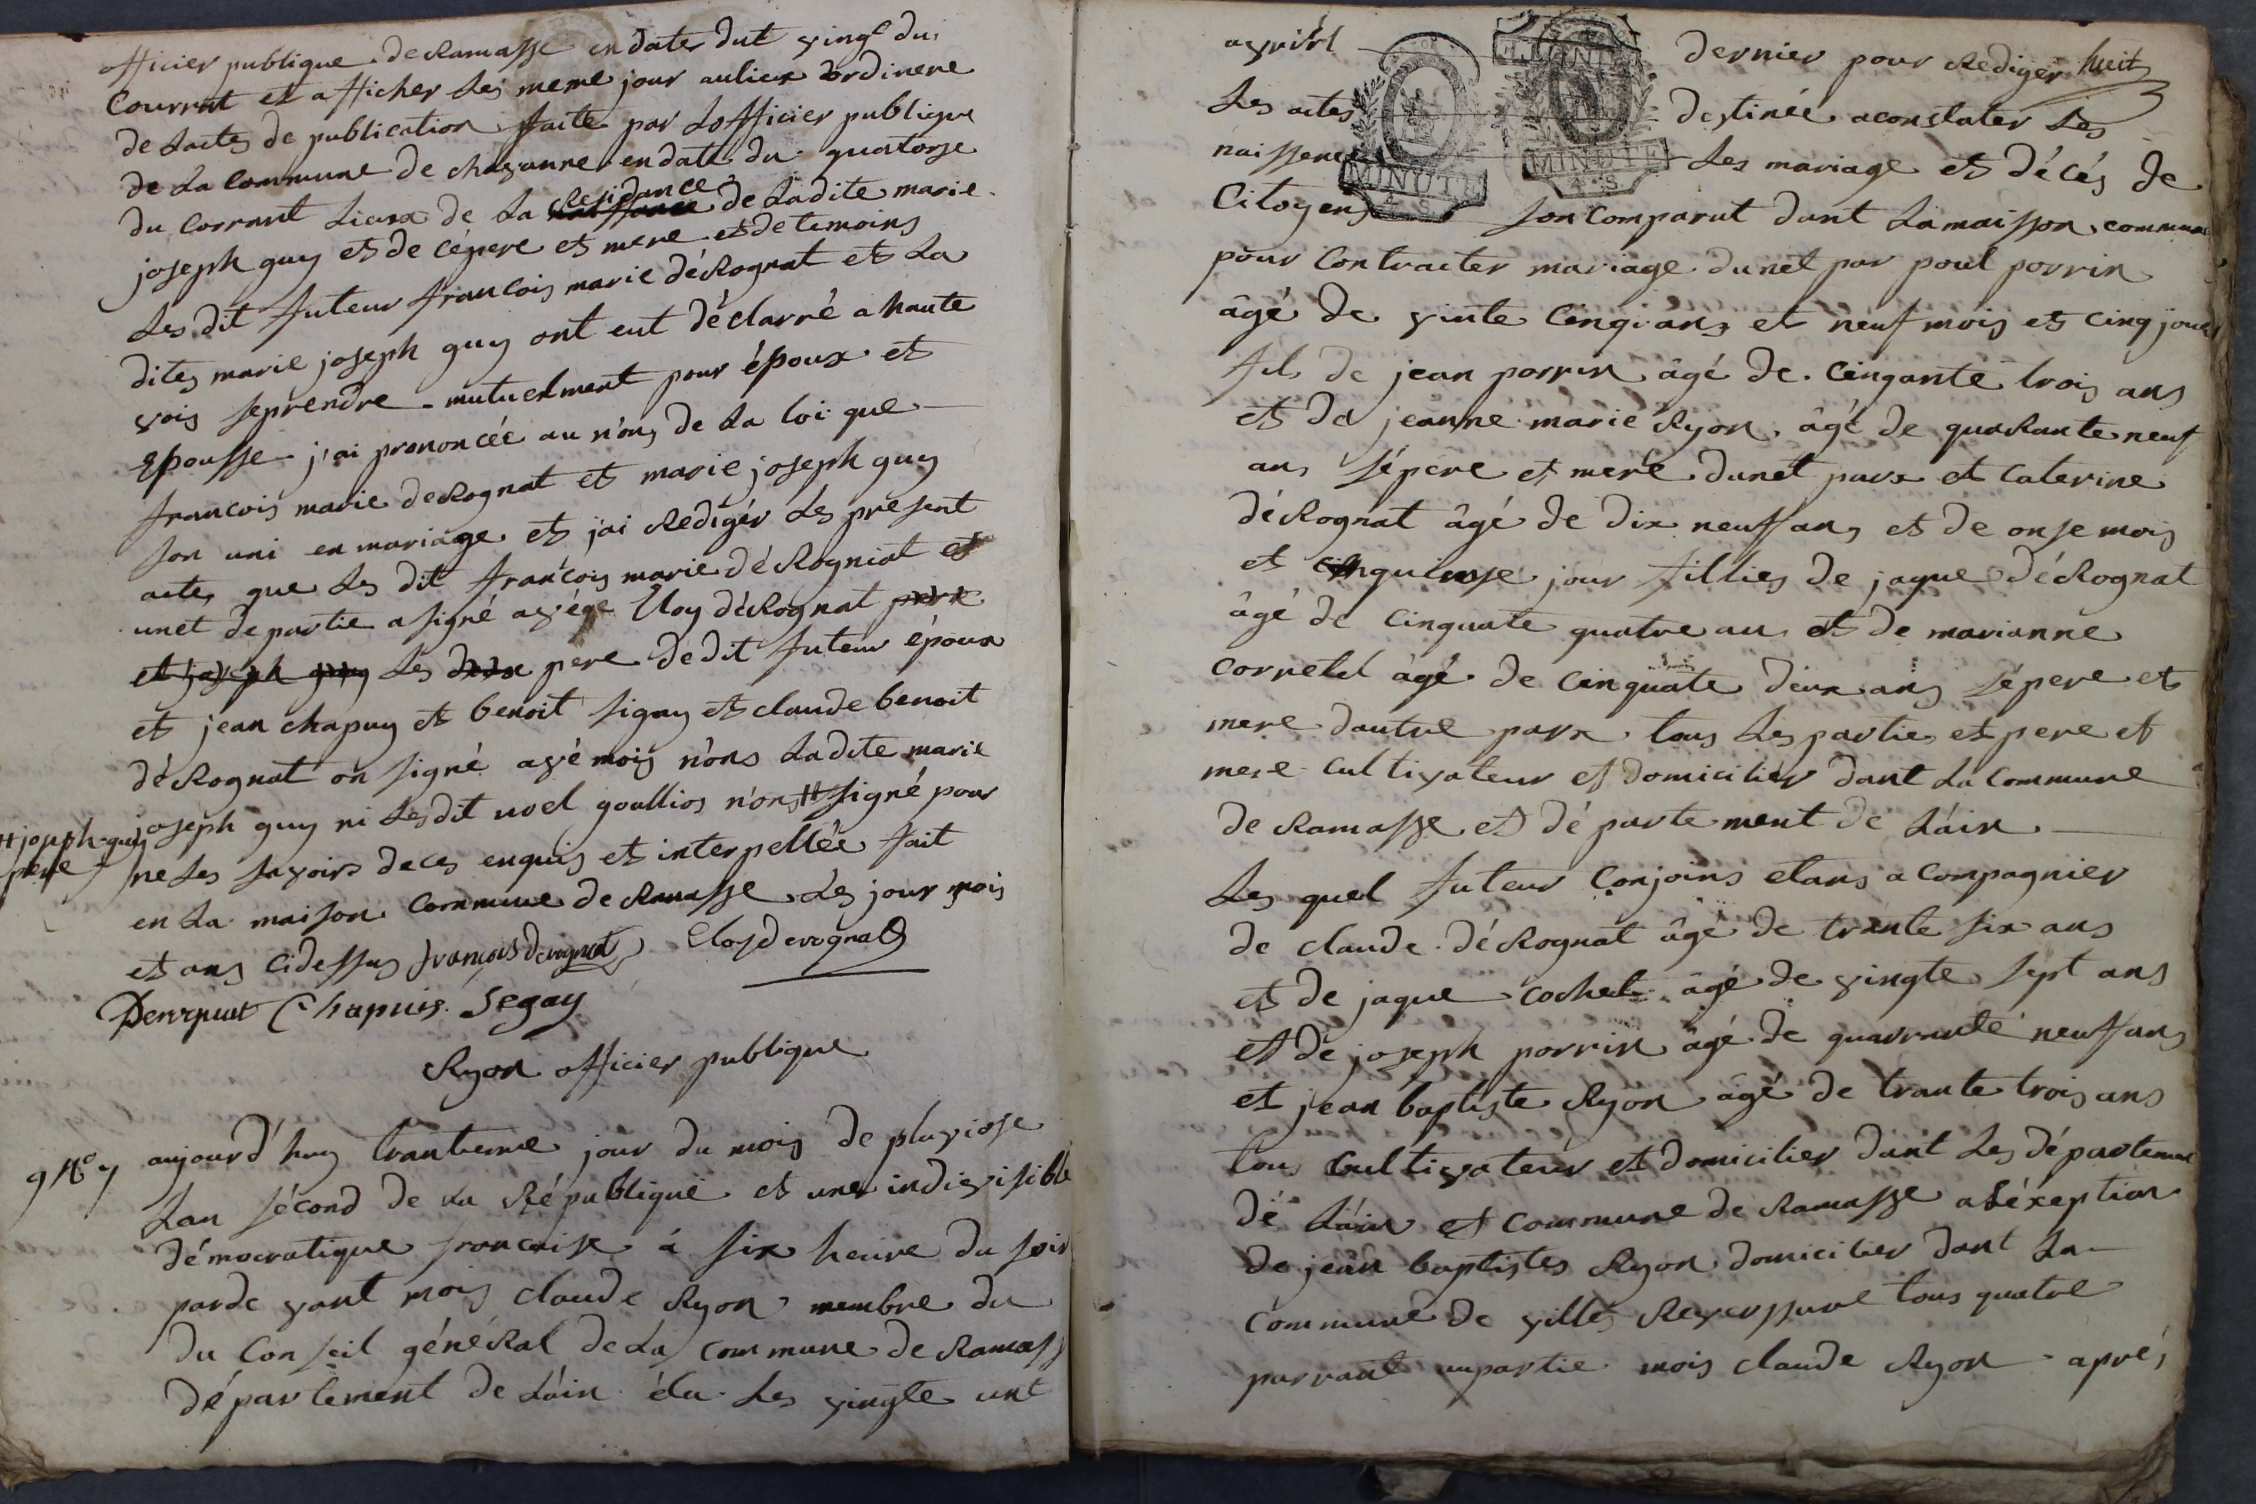 officier publique de Ramasse en date dut vingt du
Courrant et afficher les meme jour aulieux ordinere
de lactes de publication faite par Lofficier publique
de La Commune de chavanne en date du quatorse
du Corrant Lieux de La Residance de Ladite marie
joseph guy et de cépere et mere et de temoins
Les dit futeur francois marie déRognat et La
dites marie joseph guy ont eut déclarré a haute
vois seprendre mutuelment pour époux et
Epousse j'ai prononcée au nóns de La loi que
francois marie deRognat et marie joseph guy
son uni en mariage et jai Rediger Les present
actes que Les dit francois marie déRogniat et
unet de partie a signé avéqe Eloy déRognat pere
et joseph guy Les deux pere de dit futeur époux
et jean chapuy et benoit sigay et claude benoit
déRognat on signé avé mois nóns Ladite marie
joseph guy ni Lesdit noel goullios n'ons # signé pour
# joseph guy
pere
ne Les savoirs de ces enquis et interpellée fait
en La maison Commune de Ramasse Les jour mois
et ans Cidessus francois derognat Eloy derognat
Derognat Chapuis Segay
Ryon officier publique
9 No 7
aujourd'huy trantieme jour du mois de pluviose
Lan sécond de La République et une indivisible
démocratique francaise á six heure du soir
parde vant mois claude Ryon membre du
du Conseil généRal de La commune de Ramass
département de Láin élu Les vingte unt
huit
avrirl dernier pour Rediger
Les actes destinée aconstater Les
naissence Les mariage et décés de
Citoyens son Comparut dant Lamaisson commune
MINUTE
4 S
MINUTE
4 S
pour Contracter mariage dunet par poul porrin
âgé de vinte Cinq ans et neuf mois et cinq jours
fils de jean porrin âgé de Cinqante trois ans
et de jeanne marie Ryon âgé de quaRante neuf
ans sépere et mere dunet parx et Caterine
déRognat âgé de dix neuf ans et de onse mois
et quinse jour fillies de jaque déRognat
âgé de Cinquate quatre ans et de marianne
Corretel âgé de Cinquate deux ans sépere et
mere dautre parx tous Les partie et pere et
mere cultivateur et domicilier dant La Commune
de Ramasse et département de Láin
Les quel futeur Conjoins etans a Compagnier
de claude déRognat âgé de trante six ans
et de jaque Cochet âgé de vingte sept ans
et de joseph porrin âgé de quarrante neuf ans
et jean baptiste Ryon âgé de trante trois ans
tous Cultivateur et domicilier dant Les département
dé Láin et Commune de Ramasse a Léxeption
de jean baptistes Ryon domicilier dant La
Commune de villes Reverssure tous quatre
parrant unpartie mois claude Ryon aprés